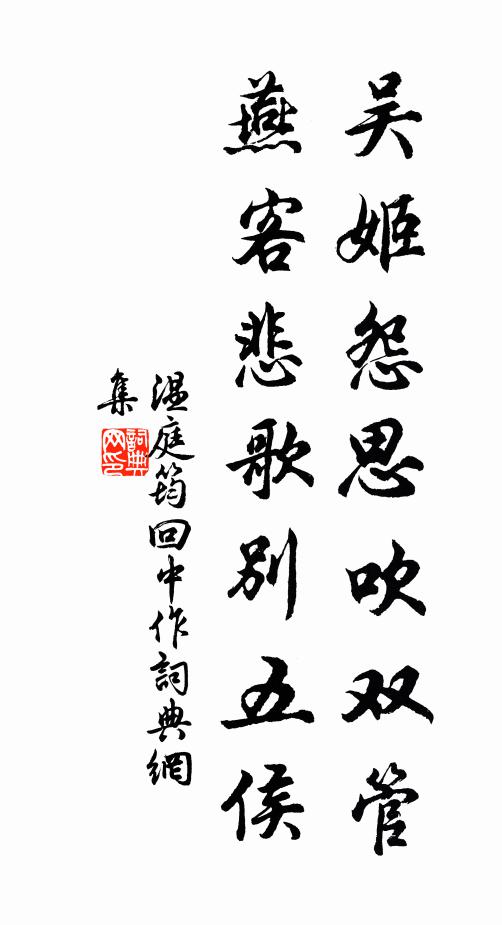 吴姬怨思吹双管
燕客悲歌别五侯
温庭筠回中作詞典網
集
詞典网印